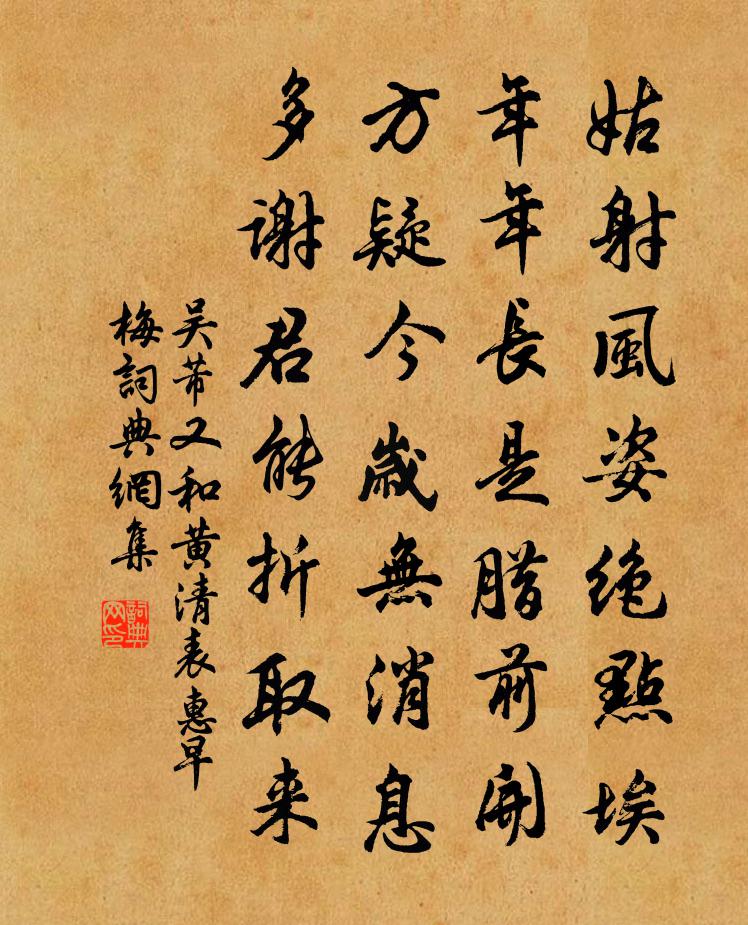 姑射風姿絶點埃
年年長是腊前開
方疑今歲無消息
多謝君能折取来
吴芾又和黄清表惠早
梅詞典網集
詞典网印